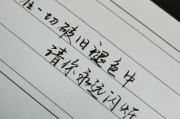 在一切破旧褪色中
请你永远闪烁